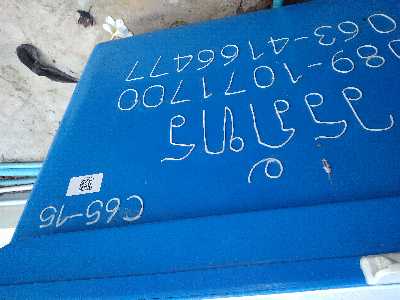 C65-15
วรภัทร
089-1071700
063-4166477